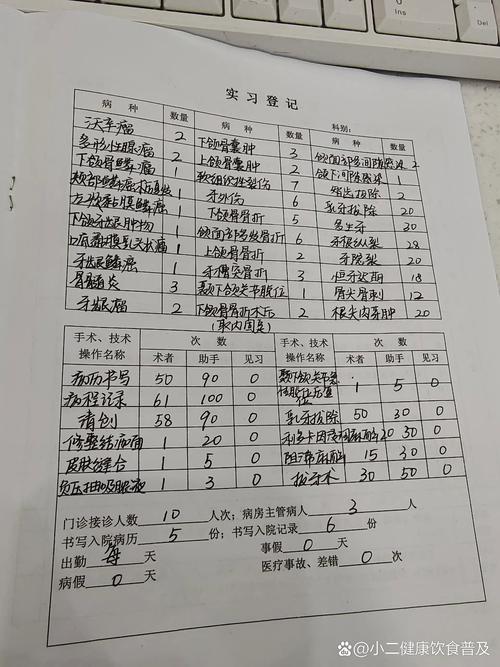 实习登记
病种 数量 病种 数量 科别:
沃辛瘤 2 下颌骨囊肿 3 颌面部多间隙感染 2
多形性腺瘤 2 上颌骨囊肿 2 颌下间隙感染 1
下颌骨鳞癌 1 软组织挫裂伤 7 智齿拔除 2
颊部鳞癌术后复发 1 牙外伤 6 乳牙拔除 20
左颊黏膜鳞癌 1 下颌骨骨折 5 多生牙 30
下颌牙龈肿物 1 颌面部多发骨折 6 牙根纵裂 28
口底黏膜乳头状瘤 1 上颌骨骨折 2 牙隐裂 20
牙龈鳞癌 1 牙槽突骨折 3 恒牙迟萌 18
骨髓炎 3 颞下颌关节脱位 1 骨尖骨刺 12
牙龈瘤 2 下颌骨骨折术后 2 根尖肉芽肿 20
(取内固定)
手术、技术 次数 手术、技术 次数
操作名称 术者 助手 见习 操作名称 术者 助手 见习
病历书写 50 90 0 颞下颌关节急性脱位复位 1 5 0
病程记录 61 100 0
清创 58 90 0 乳牙拔除 50 30 0
修整结面角 1 20 0 利多卡因 麻醉 20 30 0
皮肤缝合 1 5 0 阻滞麻醉 15 30 0
负压抽吸服液 1 3 0 拔牙术 30 50 0
门诊接诊人数 10 人次;病房主管病人 3 人
书写入院病历 5 份;书写入院记录 6 份
出勤 每 天 事假 0 天
病假 0 天 医疗事故、差错 0 次
小二健康饮食普及